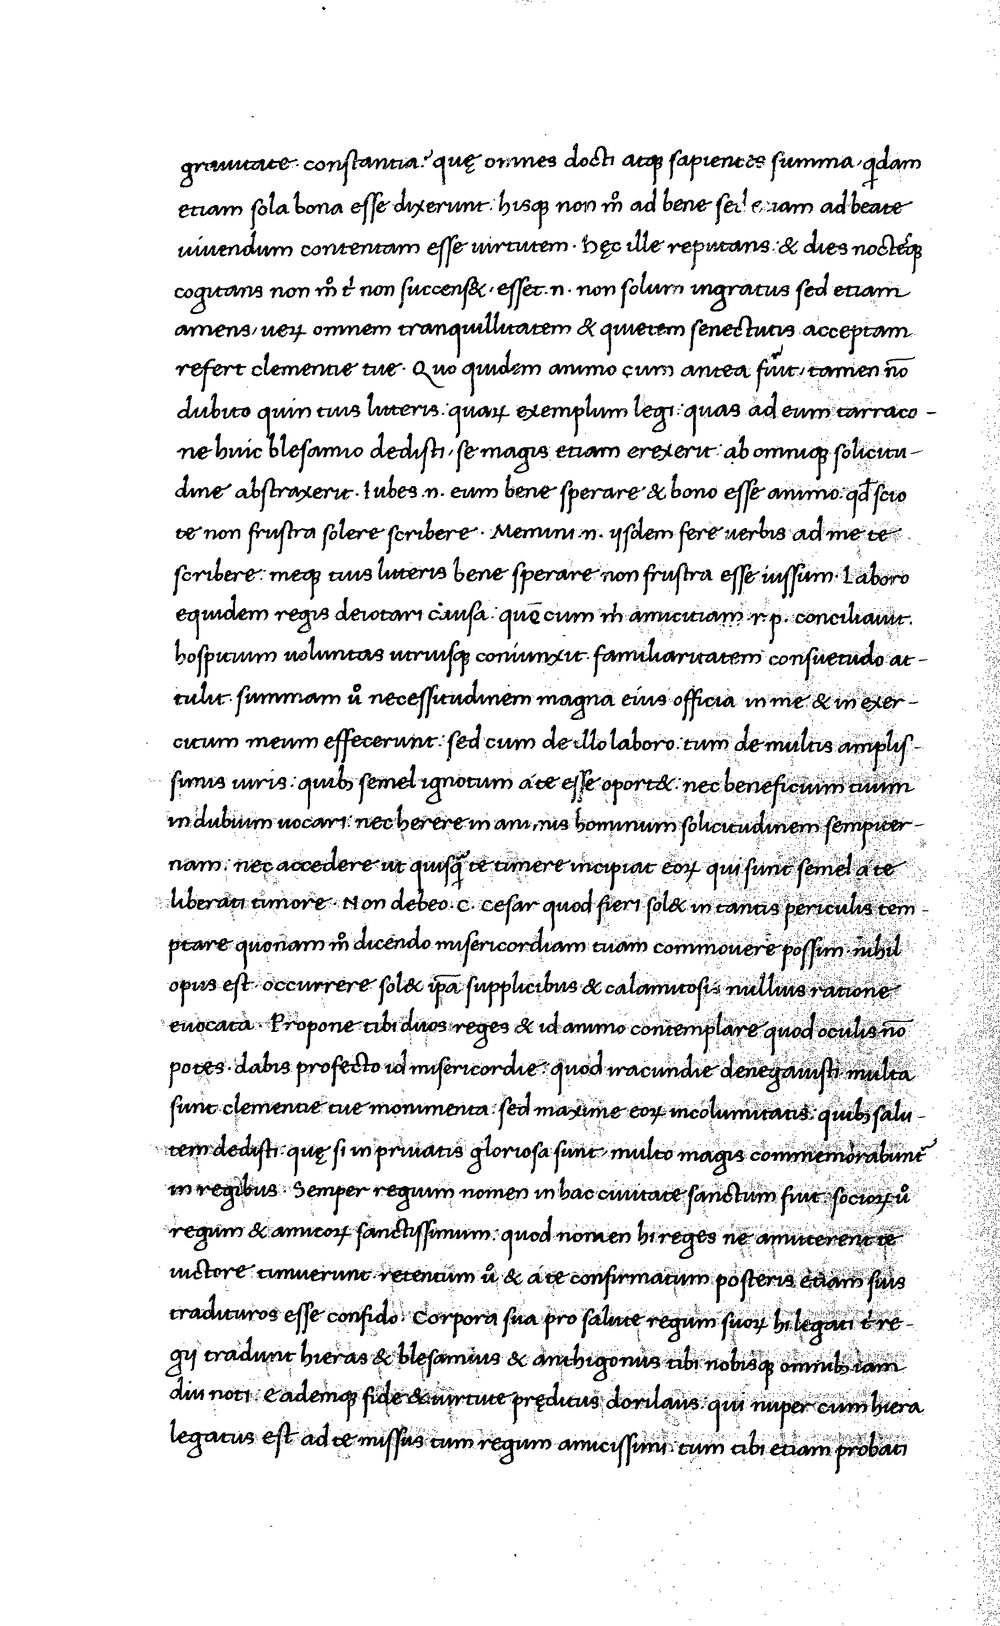 grauitate. constantia: quę omnes docti atqꝫ sapientes summa, qdam
etiam sola bona esse dixerunt: hisqꝫ non m̊ ad bene sed etiam ad beate
uiuendum contentam esse uirtutem. hęc ille reputans: & dies noctesqꝫ
cogitans non m̊ t̄ non succens&, esset .n. non solum ingratus sed etiam
amens, ueꝝ omnem tranquillitatem & quietem senectutis acceptam
refert clementie tue. Quo quidem animo cum antea fuit, tamen nō
dubito quin tuis litteris: quaꝝ exemplum legi: quas ad eum tarraco-
ne huic blesamio dedisti, se magis etiam erexerit: ab omniqꝫ solicitu-
dine abstraxerit. Iubes .n. eum bene sperare & bono esse animo: qd̄ scio
te non frustra solere scribere. Memini .n. ijsdem fere uerbis ad me te
scribere: meqꝫ tuis litteris bene sperare non frustra esse iussum. Laboro
equidem regis deiotari causa: quē cum m̊ amicitiam r. p. conciliauit.
hospitium uoluntas utriusqꝫ coniunxit: familiaritatem consuetudo at-
tulit: summam ů necessitudinem magna eius officia in me & in exer-
citum meum effecerunt: sed cum de illo laboro: tum de multis amplis-
simis uiris: quibꝫ semel ignotum a te esse oport&: nec beneficium tuum
in dubium uocari: nec herere in animis hominum solicitudinem sempiter-
nam: nec accedere ut quisq̄ te timere incipiat eoꝝ qui sunt semel a te
liberati timore. Non debeo .c. cesar quod fieri sol& in tantis periculis tem-
ptare quonam m̊ dicendo misericordiam tuam commouere possim: nihil
opus est: occurrere sol& ip̄a supplicibus & calamitosis nullius ratione
euocata. Propone tibi duos reges & id animo contemplare quod oculis nō
potes. dabis profecto id misericordie: quod iracundie denegauisti: multa
sunt clementie tue monumenta: sed maxime eoꝝ incolumitatis: quibꝫ salu-
tem dedisti: quę si in priuatis gloriosa sunt, multo magis commemorabunt̃
in regibus. Semper regium nomen in hac ciuitate sanctum fuit: socioꝝ ů
regum & amicoꝝ sanctissimum: quod nomen hi reges ne amitterent te
uictore timuerunt: retentum ů & a te confirmatum posteris etiam suis
tradituros esse confido. Corpora sua pro salute regum suoꝝ hi legati t̄ re-
gij tradunt hieras & blesamius & anthigonus tibi nobisqꝫ omnibꝫ iam
diu noti. Eademqꝫ fide & uirtute prędictus dorilaus: qui nuper cum hiera
legatus est ad te missus tum regum amicissimi: tum tibi etiam probati